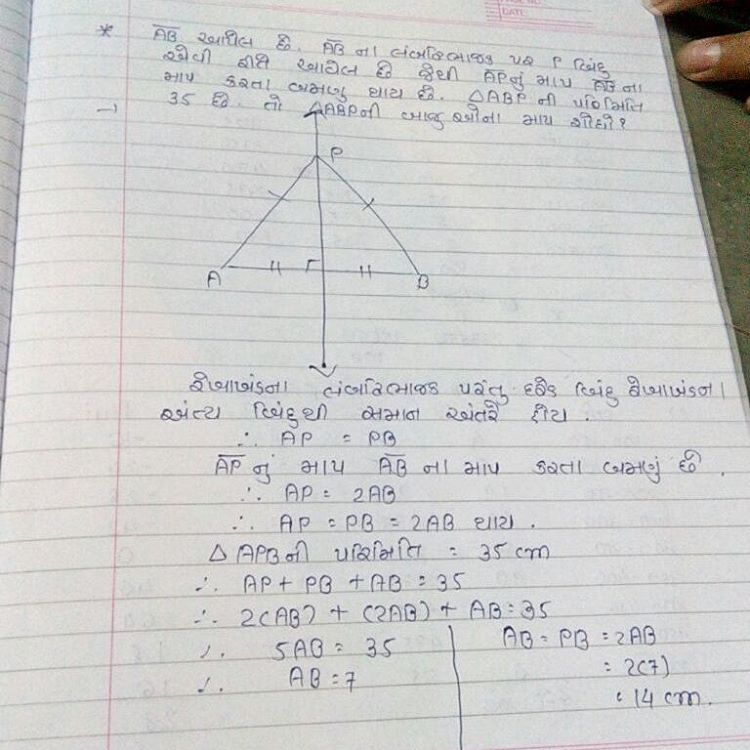 DATE
* AB આપેલ છે. AB ના લંબદ્વિભાજક પર P બિંદુ
એવી રીતે આપેલ છે જેથી APનું માપ AB ના
માપ કરતા બમણું થાય છે. △ABP ની પરિમિતિ
→ 35 છે. તો △ABPની બાજુઓના માપ શોધો?
P
A
B
રેખાખંડના લંબદ્વિભાજક પરનું દરેક બિંદુ રેખાખંડના
અંત્ય બિંદુથી સમાન અંતરે હોય.
∴ AP = PB
AP નું માપ AB ના માપ કરતા બમણું છે.
∴ AP = 2AB
∴ AP = PB = 2AB થાય.
△ APBની પરિમિતિ = 35 cm
∴ AP + PB + AB = 35
∴ 2(AB) + (2AB) + AB = 35
∴ 5AB = 35
∴ AB = 7
AB = PB = 2AB
= 2(7)
= 14 cm.